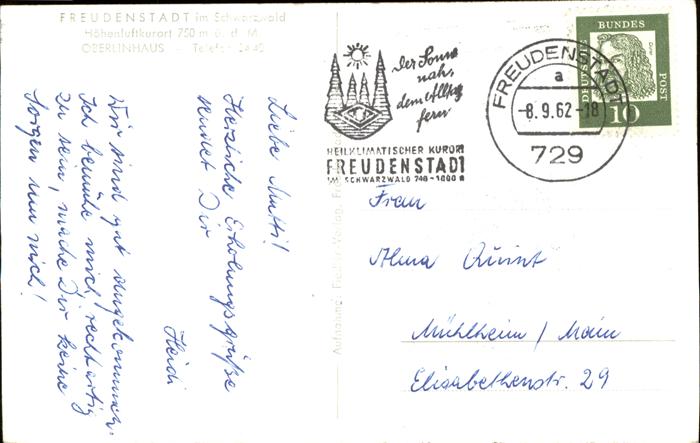 FREUDENSTADT im Schwarzwald
Höhenluftkurort 750 m ü. d. M.
OBERLINHAUS - Telefon 24 40
Liebe Mutti!
Herzliche Erholungsgrüße
sendet Dir
Heidi
Wir sind gut angekommen.
Ich bemühe mich, recht artig
zu sein, mache Dir keine
Sorgen um mich!
Der Sonne
nah,
dem Alltag
fern
HEILKLIMATISCHER KURORT
FREUDENSTADT
IM SCHWARZWALD 740-1000 m
FREUDENSTADT
a
-8.9.62-18
729
DEUTSCHE
BUNDES
POST
Dürer
10
Frau
Alma Quint
Mühlheim / Main
Elisabethenstr. 29